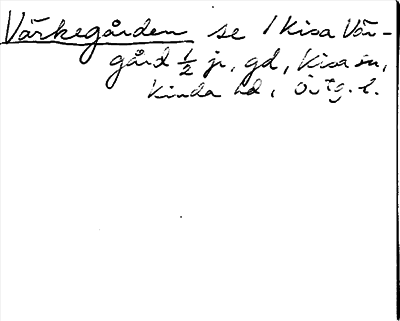 Värkegården se 1 Kisa Vär-
gård ½ jr, gd, Kisa sn,
Kinda hd, Östg. l.